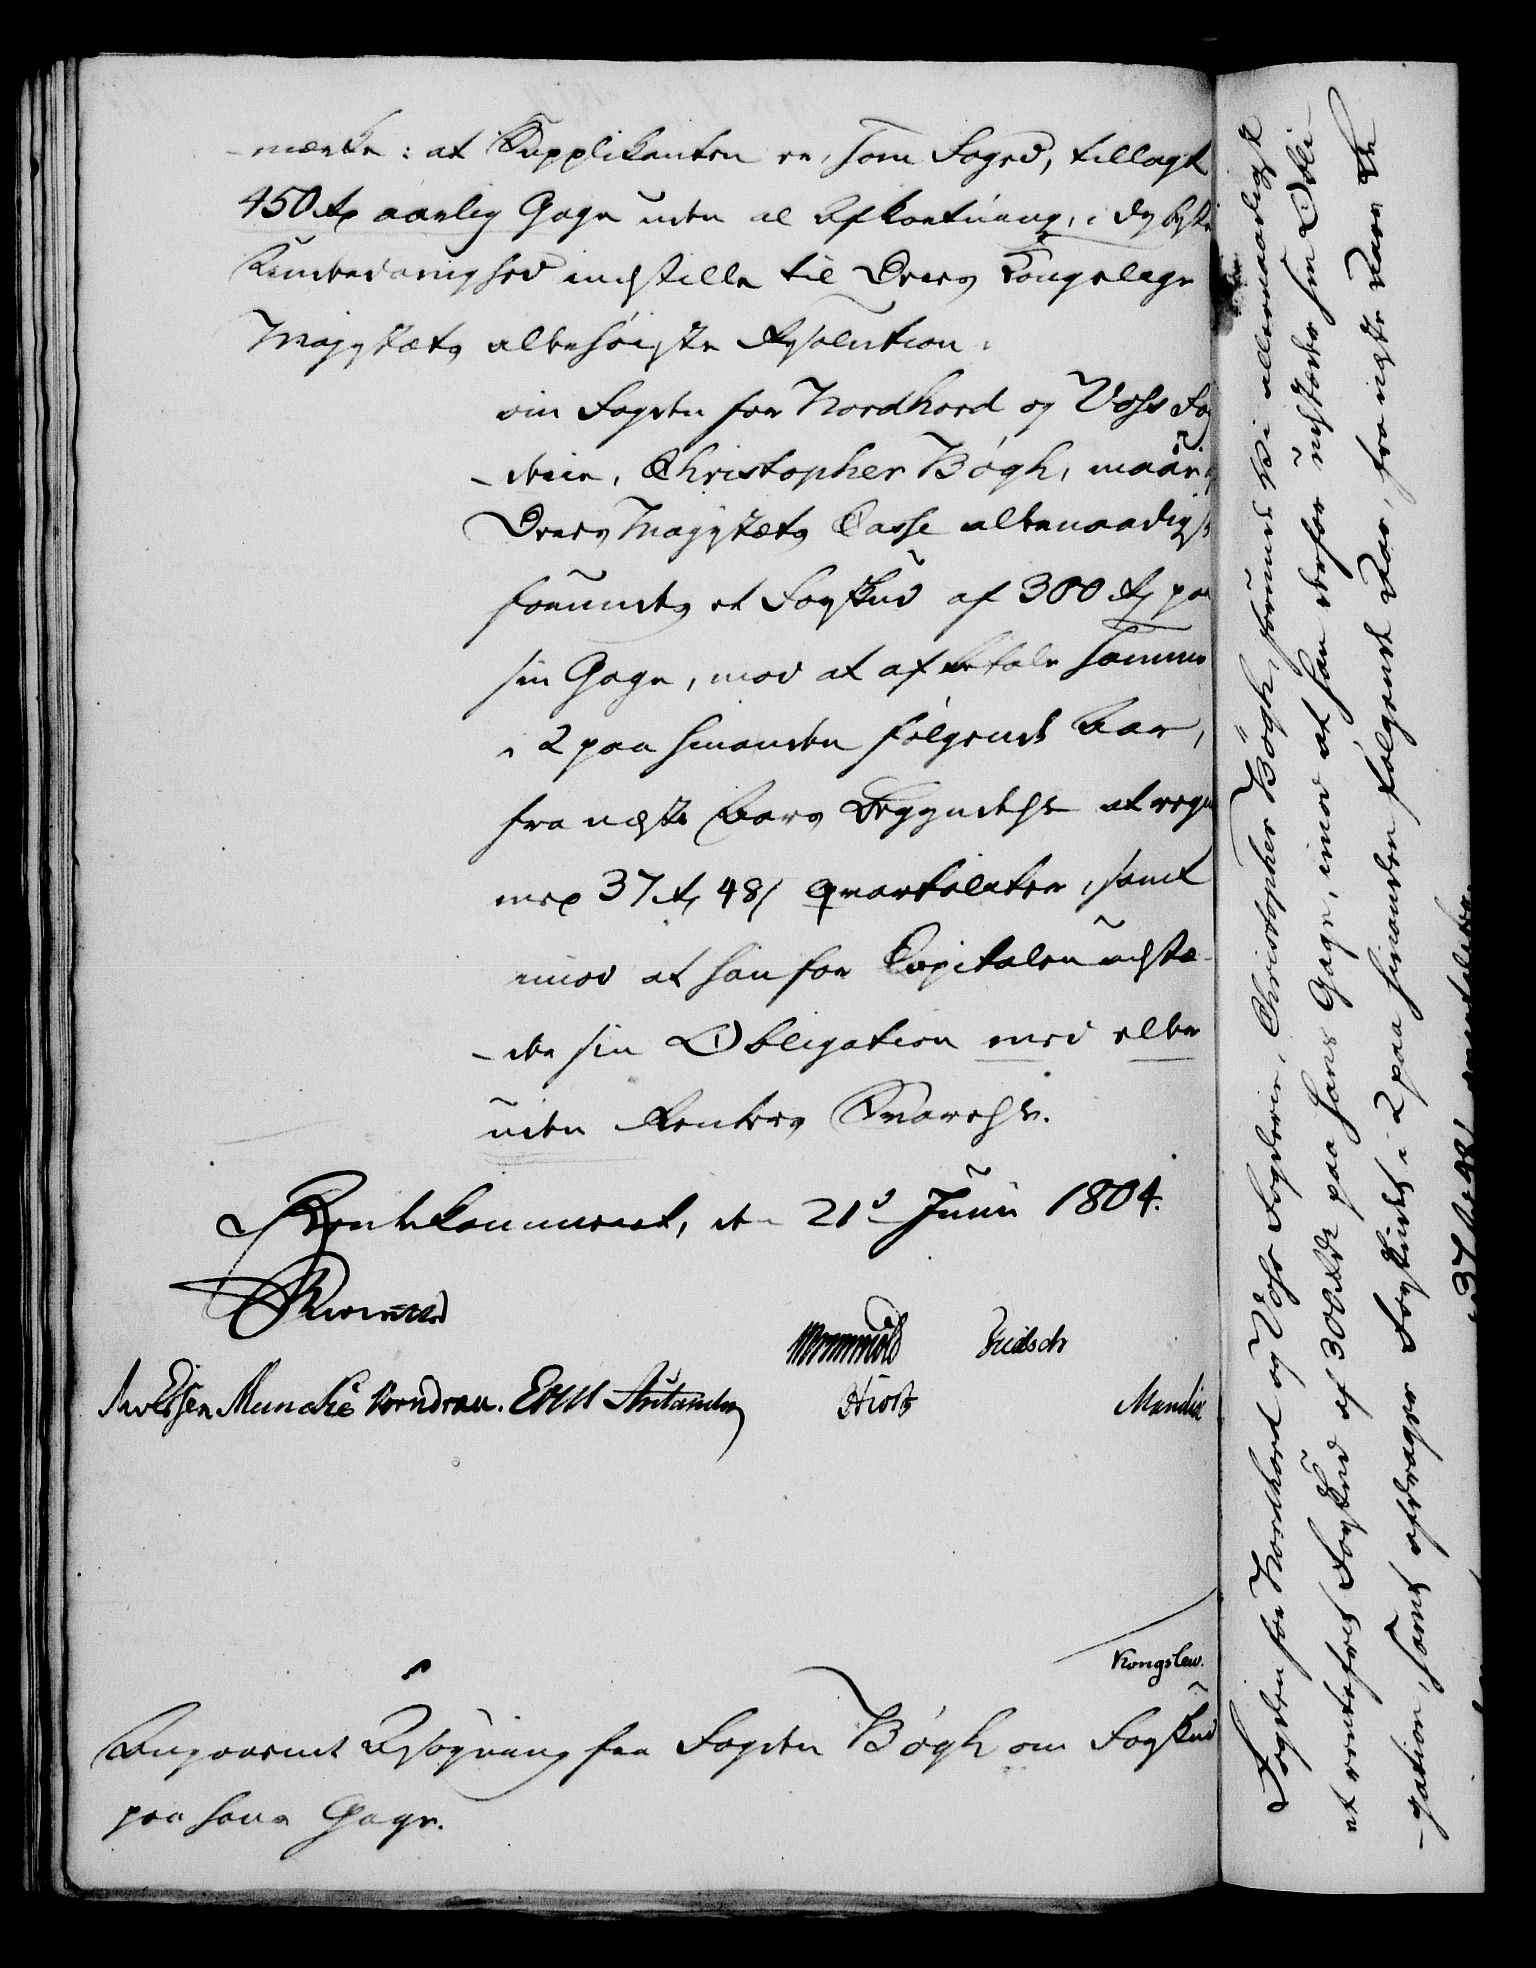 -mærke: at Supplikanten er, som Foged, tillagt
450 rdr aarlig Gage uden al Afkortning, i dybeste
Underdanighed indstille til Deres Kongelige
Majestæts allerhøieste Resolution:
om Fogden for Nordhord og Voss Fog
-derie, Christopher Bøgh, maae i
Deres Majestæts Casse allernaadigst
forundes et Forskud af 300 rdr paa
sin Gage, mod at afbetale samme
i 2 paa hinanden følgende Aar,
fra næste Aars Begyndelse at regne
med 37 rdr 48 s qvartaliter, samt
imod at han for Capitalen udste-
-der sin Obligation med eller
uden Renters Svarelse.
Rentekammeret, den 21d Junii 1804.
Reventlow
Wormskiold Fridsch
Essen Muncke Vorndran. Hiort Mandix
Kongslew.
Angaaende Ansøgning fra Fogden Bøgh om Forskud
paa hans Gage.
Fogden for Nordhord og Voss Fogderie, Christopher Bøgh, forunde Vi allernaadigst
et rentefrit Forskud af 300 rdr paa hans Gage, imod at han derfor udsteder sin Obli-
-gation, samt afdrager Forskudet i 2 paa hinanden følgende Aar, fra næste Aars
37 rdr 48 s qvartaliter.